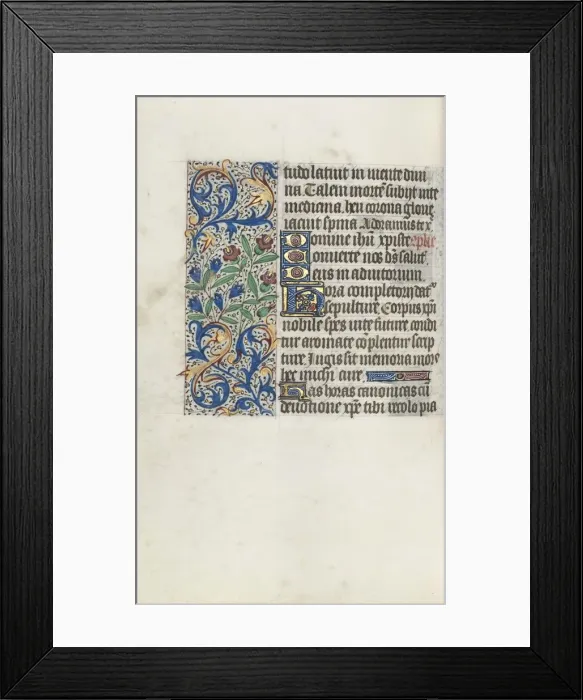 tudo latuit in mente diui
na Talem morte subijt inte
mediana. heu corona glorie
iacuit spina Adoramus te x
Domine ihu xpiste xpiste
Conuerte nos ds salut
Deus in adiutorium
Hora completorij dat
sepulture. Corpus xpi
nobile spes uite future condi
tur aromate coplentur scrip
ture. Jugis sit memoria mors
hec michi cure.
Has horas canonicas cu
deuotione xpe tibi recolo pia